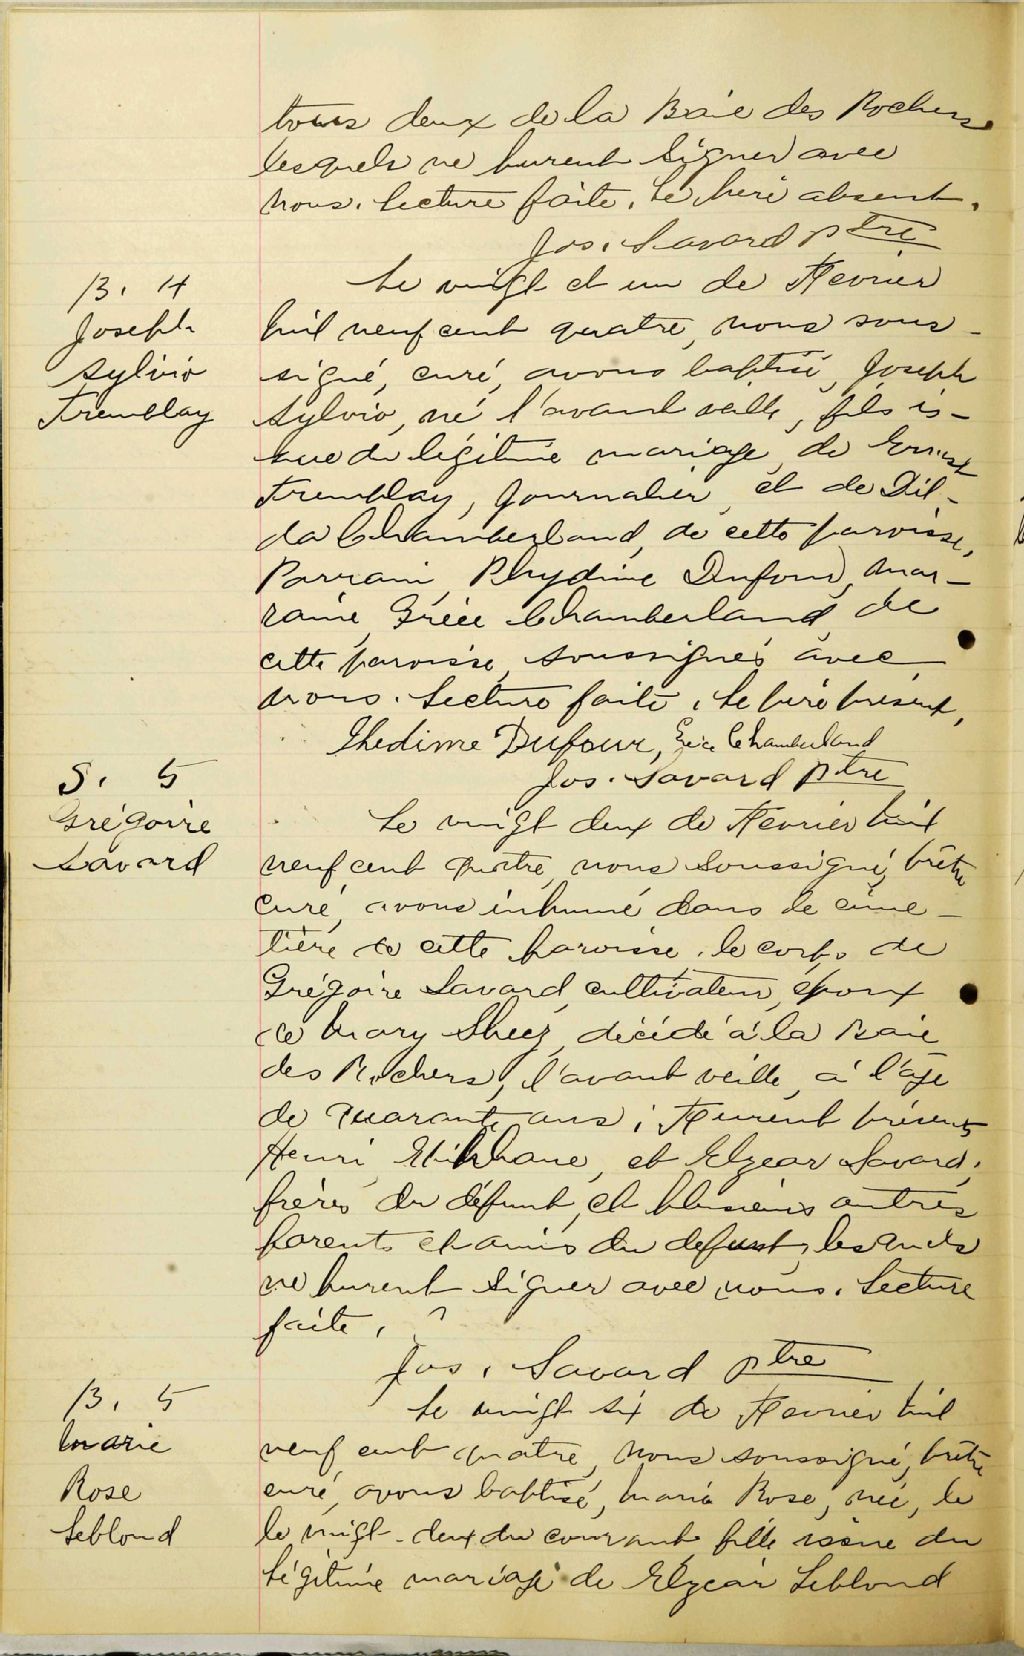 tous deux de la Baie des Rochers
lesquels ne purent signer avec
nous. Lecture faite. Le père absent.
Jos. Savard ptre
B. 4
Joseph
Sylvio
Tremblay
Le vingt et un de Fevrier
mil neuf cent quatre, nous sous-
signé, curé, avons baptisé, Joseph
Sylvio, né l'avant veille, fils is-
sue du légitime mariage, de Ernest
Tremblay, journalier, et de Dil-
da Chamberland, de cette paroisse,
Parrain, Dufour, mar-
raine, Chamberland, de
cette paroisse, soussignés avec
nous. Lecture faite. Le père présent.
Thedime Dufour, Chamberland
Jos. Savard ptre
S. 5
Grégoire
Savard
Le vingt deux de Fevrier mil
neuf cent quatre, nous soussigné, prêtre
curé, avons inhumé dans le cime-
tière de cette paroisse, le corps de
Grégoire Savard, cultivateur, époux
de Mary, décédé à la Baie
des Rochers, l'avant veille, à l'âge
de quarante ans; Furent présents
Henri, et Elzear Savard,
frères du défunt, et plusieurs autres
parents et amis du defunt, lesquels
ne purent signer avec nous. Lecture
faite.
Jos. Savard ptre
B. 5
Marie
Rose
Leblond
Le vingt six de Fevrier mil
neuf cent quatre, nous soussigné, prêtre
curé, avons baptisé, Marie Rose, née, le
le vingt-deux du courant, fille issue du
légitime mariage de Elzear Leblond